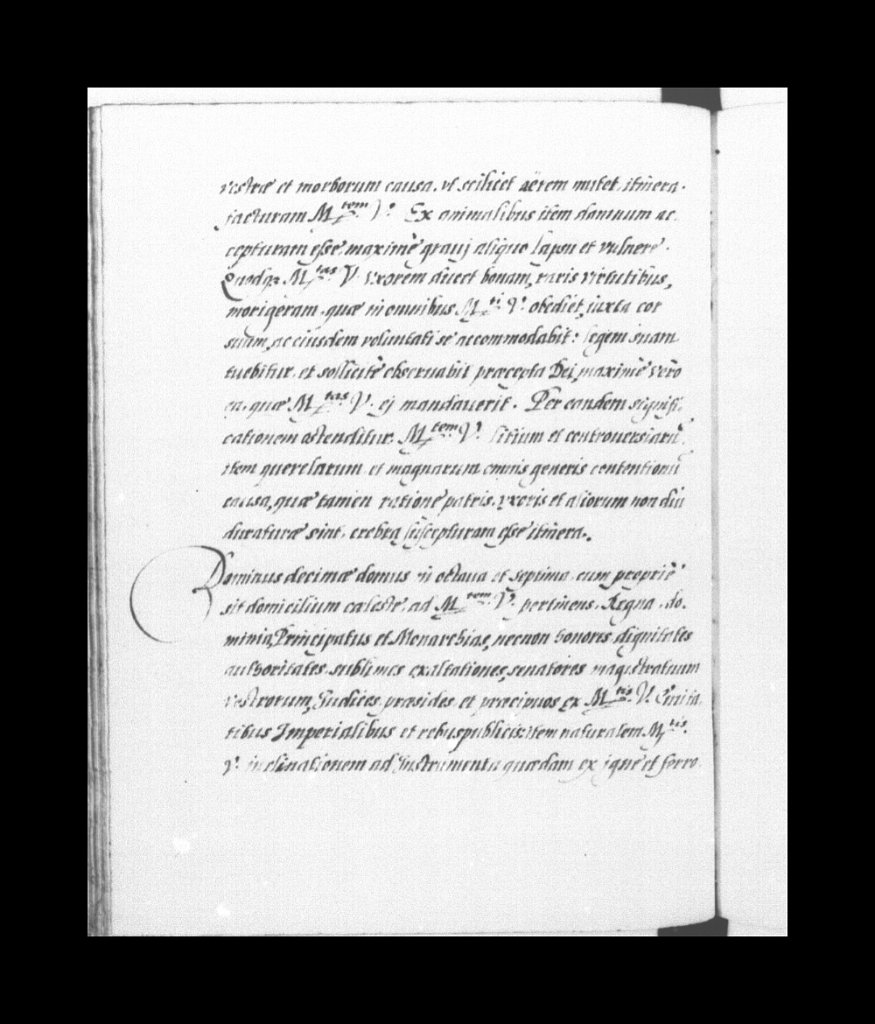 vestræ et morborum causa, vt scilicet aërem mutet, itinera
facturam M.tem V. Ex animalibus item damnum ac,
cepturam esse maximè graui aliquo lapsu et vulnere.
Quodq; M.tas V. vxorem ducet bonam, raris virtutibus,
morigeram, quæ in omnibus M.ti V. obediet, iuxta cor
suum, ac eiusdem voluntati se accommodabit: legem suam
tuebitur, et sollicitè obseruabit præcepta Dei, maximè verò
ea, quæ M.tas V. ej mandauerit. Per eandem signifi,
cationem ostenditur M.tem V. litium et controuersiarũ,
item querelarum et magnarum omnis generis contentionũ
causa, quæ tamen ratione patris, vxoris et aliorum non diu
duraturæ sint, crebra suscepturam esse itinera.
Dominus decimæ domus in octaua et septima, cum propriè
sit domicilium cæleste, ad M.tem V. pertinens, Regna, do,
minia, Principatus et Monarchias, necnon honoris dignitates
authoritates, sublimes exaltationes, senatores magistratuum
vestrorum, Judices, præsides et præcipuos ex M.tis V. Ciuita,
tibus Imperialibus et rebuspublicis: item naturalem M.tis
V. inclinationem ad Instrumenta quædam ex igne et ferro